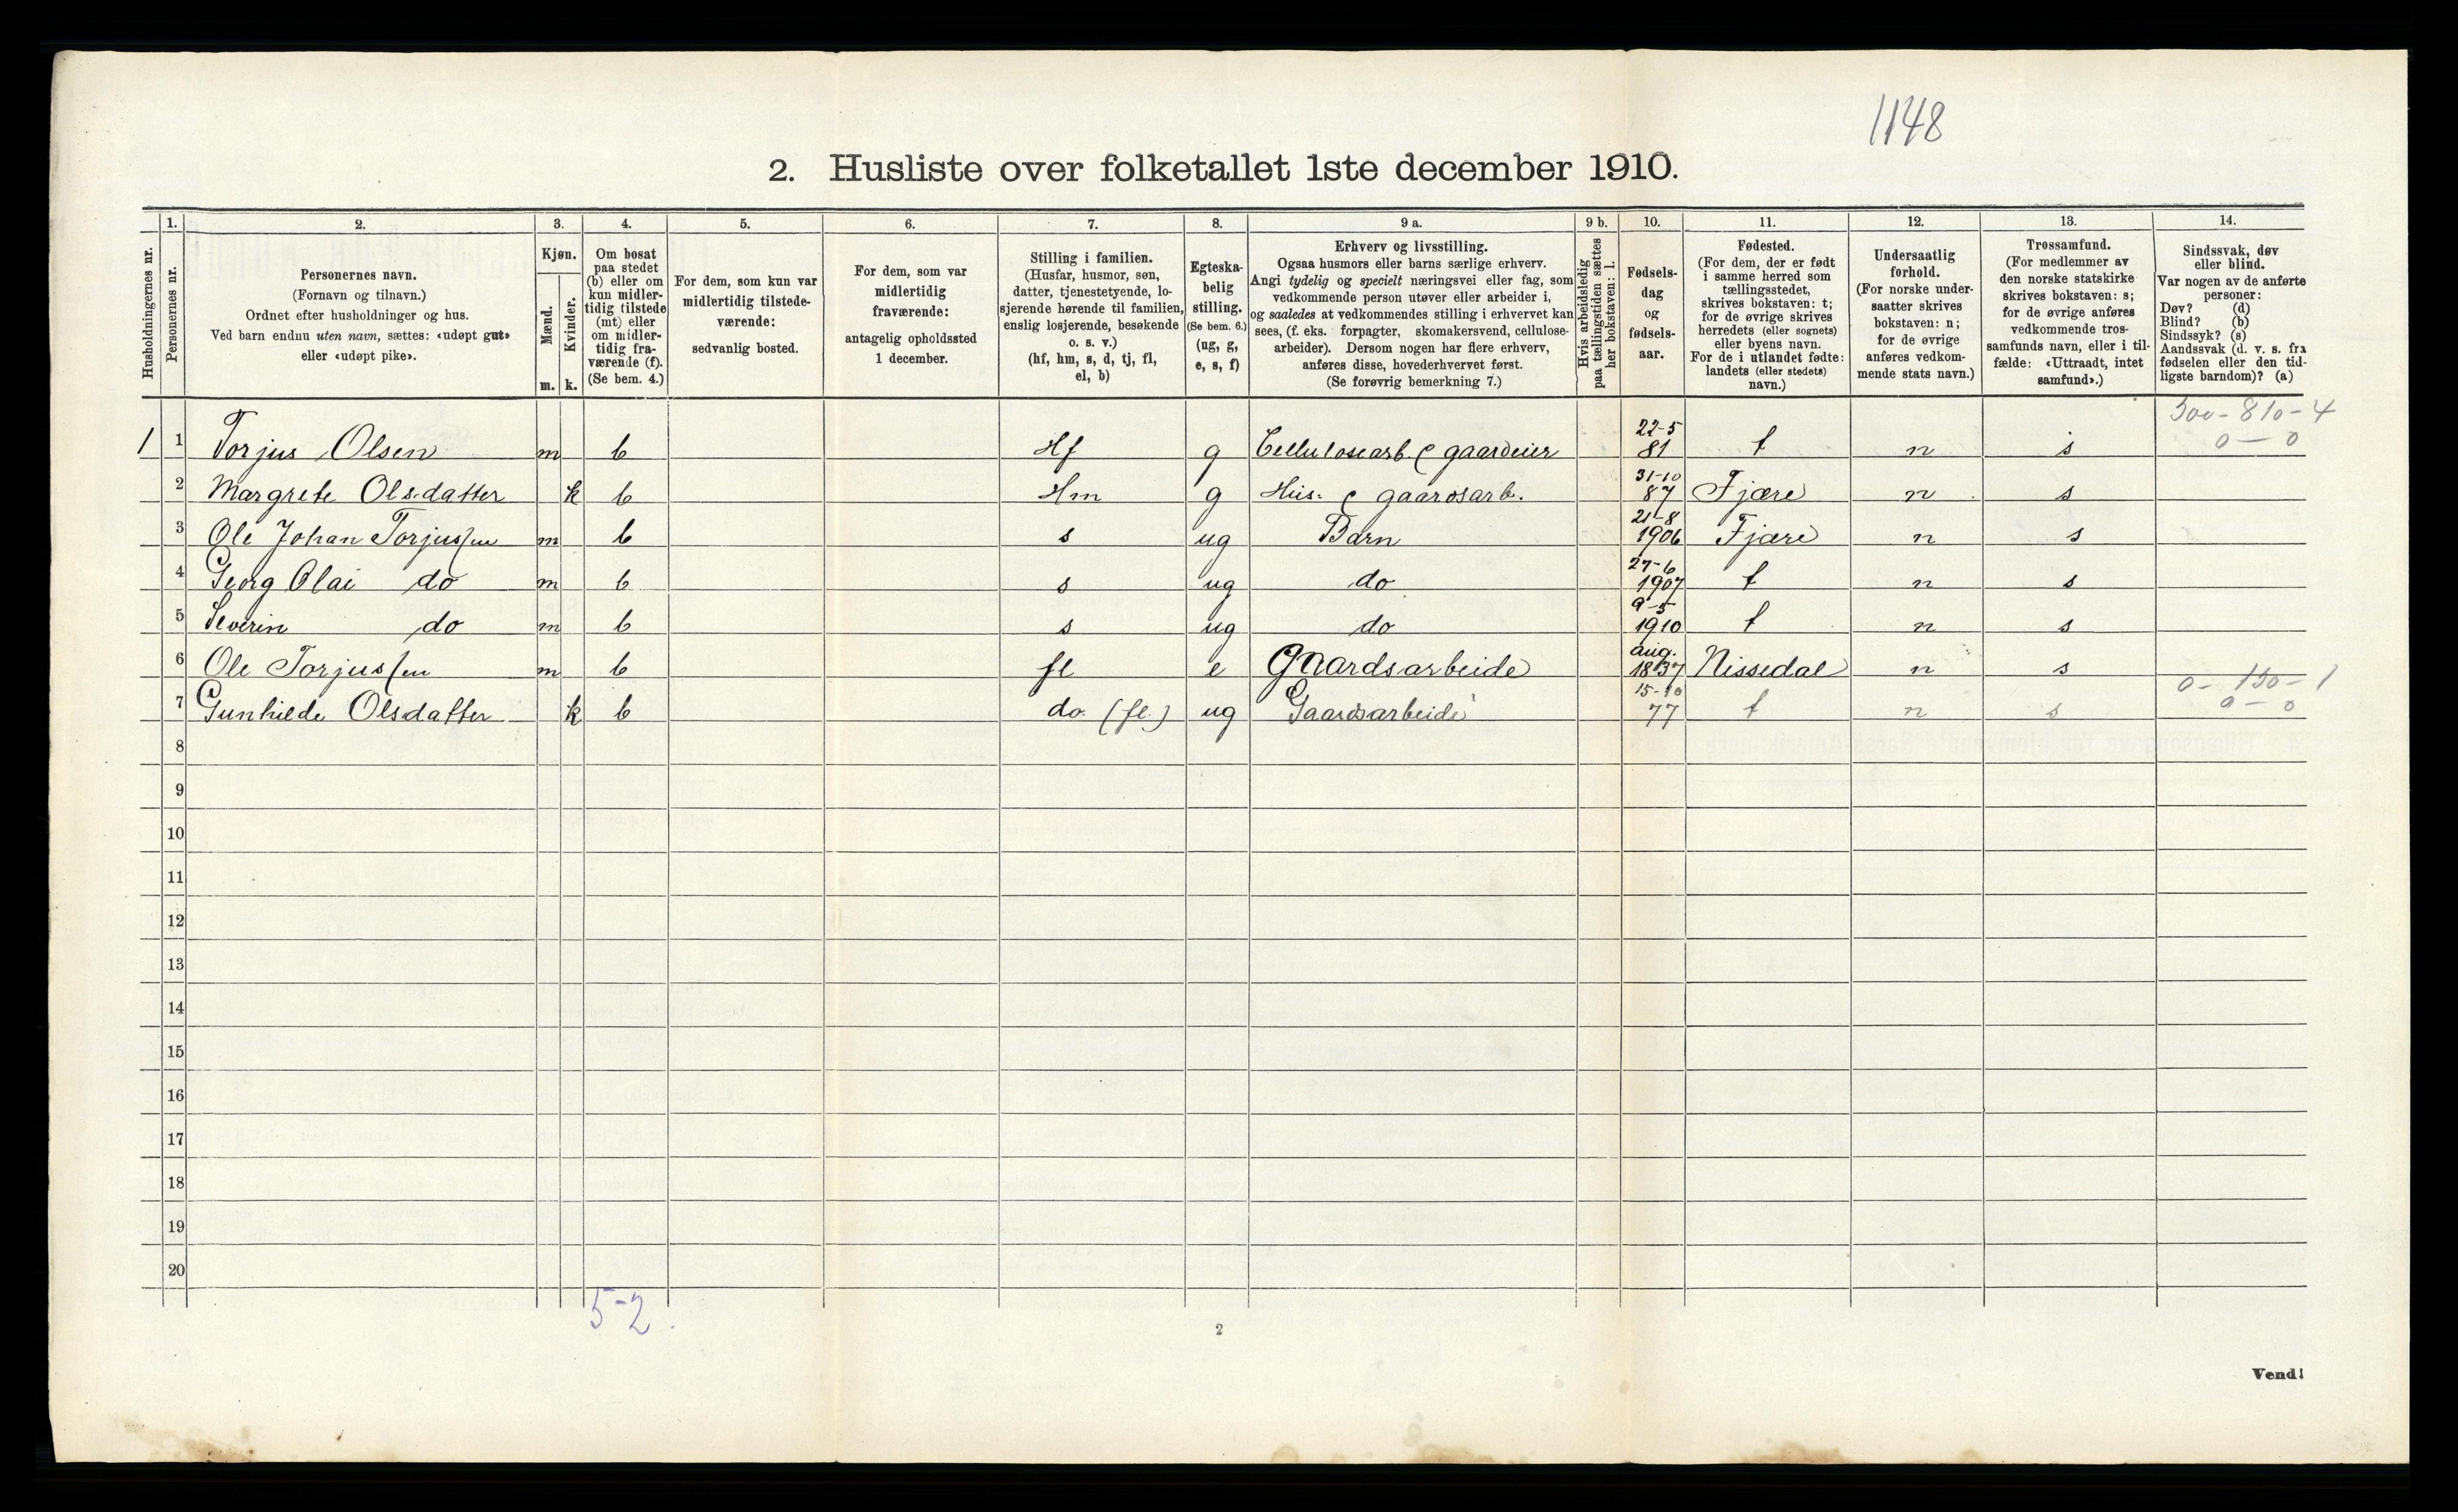 1148
2. Husliste over folketallet 1ste december 1910.
1. 2. 3. 4. 5. 6. 7. 8. 9 a. 9 b. 10. 11. 12. 13. 14.
Husholdningernes nr.
Personernes nr.
Personernes navn.
(Fornavn og tilnavn.)
Ordnet efter husholdninger og hus.
Ved barn endnu uten navn, sættes: «udøpt gut»
eller «udøpt pike».
Kjøn.
Mænd.
Kvinder.
m. k.
Om bosat
paa stedet
(b) eller om
kun midler-
tidig tilstede
(mt) eller
om midler-
tidig fra-
værende (f).
(Se bem. 4.)
For dem, som kun var
midlertidig tilstede-
værende:
sedvanlig bosted.
For dem, som var
midlertidig
fraværende:
antagelig opholdssted
1 december.
Stilling i familien.
(Husfar, husmor, søn,
datter, tjenestetyende, lo-
sjerende hørende til familien,
enslig losjerende, besøkende
o. s. v.)
(hf, hm, s, d, tj, fl,
el, b)
Egteska-
belig
stilling.
(Se bem. 6.)
(ug, g,
e, s, f)
Erhverv og livsstilling.
Ogsaa husmors eller barns særlige erhverv.
Angi tydelig og specielt næringsvei eller fag, som
vedkommende person utøver eller arbeider i,
og saaledes at vedkommendes stilling i erhvervet kan
sees, (f. eks. forpagter, skomakersvend, cellulose-
arbeider). Dersom nogen har flere erhverv,
anføres disse, hovederhvervet først.
(Se forøvrig bemerkning 7.)
Hvis arbeidsledig
paa tællingstiden sættes
her bokstaven: l.
Fødsels-
dag
og
fødsels-
aar.
Fødested.
(For dem, der er født
i samme herred som
tællingsstedet,
skrives bokstaven: t;
for de øvrige skrives
herredets (eller sognets)
eller byens navn.
For de i utlandet fødte:
landets (eller stedets)
navn.)
Undersaatlig
forhold.
(For norske under-
saatter skrives
bokstaven: n;
for de øvrige
anføres vedkom-
mende stats navn.)
Trossamfund.
(For medlemmer av
den norske statskirke
skrives bokstaven: s;
for de øvrige anføres
vedkommende tros-
samfunds navn, eller i til-
fælde: «Uttraadt, intet
samfund».)
Sindssvak, døv
eller blind.
Var nogen av de anførte
personer:
Døv? (d)
Blind? (b)
Sindssyk? (s)
Aandssvak (d. v. s. fra
fødselen eller den tid-
ligste barndom)? (a)
300-810-4
0-0
1 1 Torjus Olsen m b Hf g Cellulosearb. & gaardeier 22-5 81 t n s
2 Margrete Olsdatter k b Hm g Hus- & gaardsarb. 31-10 87 Fjære n s
3 Ole Johan Torjussen m b s ug Barn 21-8 1906 Fjære n s
4 Georg Olai do m b s ug do 27-6 1907 t n s
5 Severin do m b s ug do 9-5 1910 t n s
6 Ole Torjussen m b fl e Gaardsarbeide aug. 1837 Nissedal n s
0-150-1
0-0
7 Gunhilde Olsdatter k b do (fl.) ug Gaardsarbeide 15-10 77 t n s
8
9
10
11
12
13
14
15
16
17
18
19
20
5-2
2
Vend!